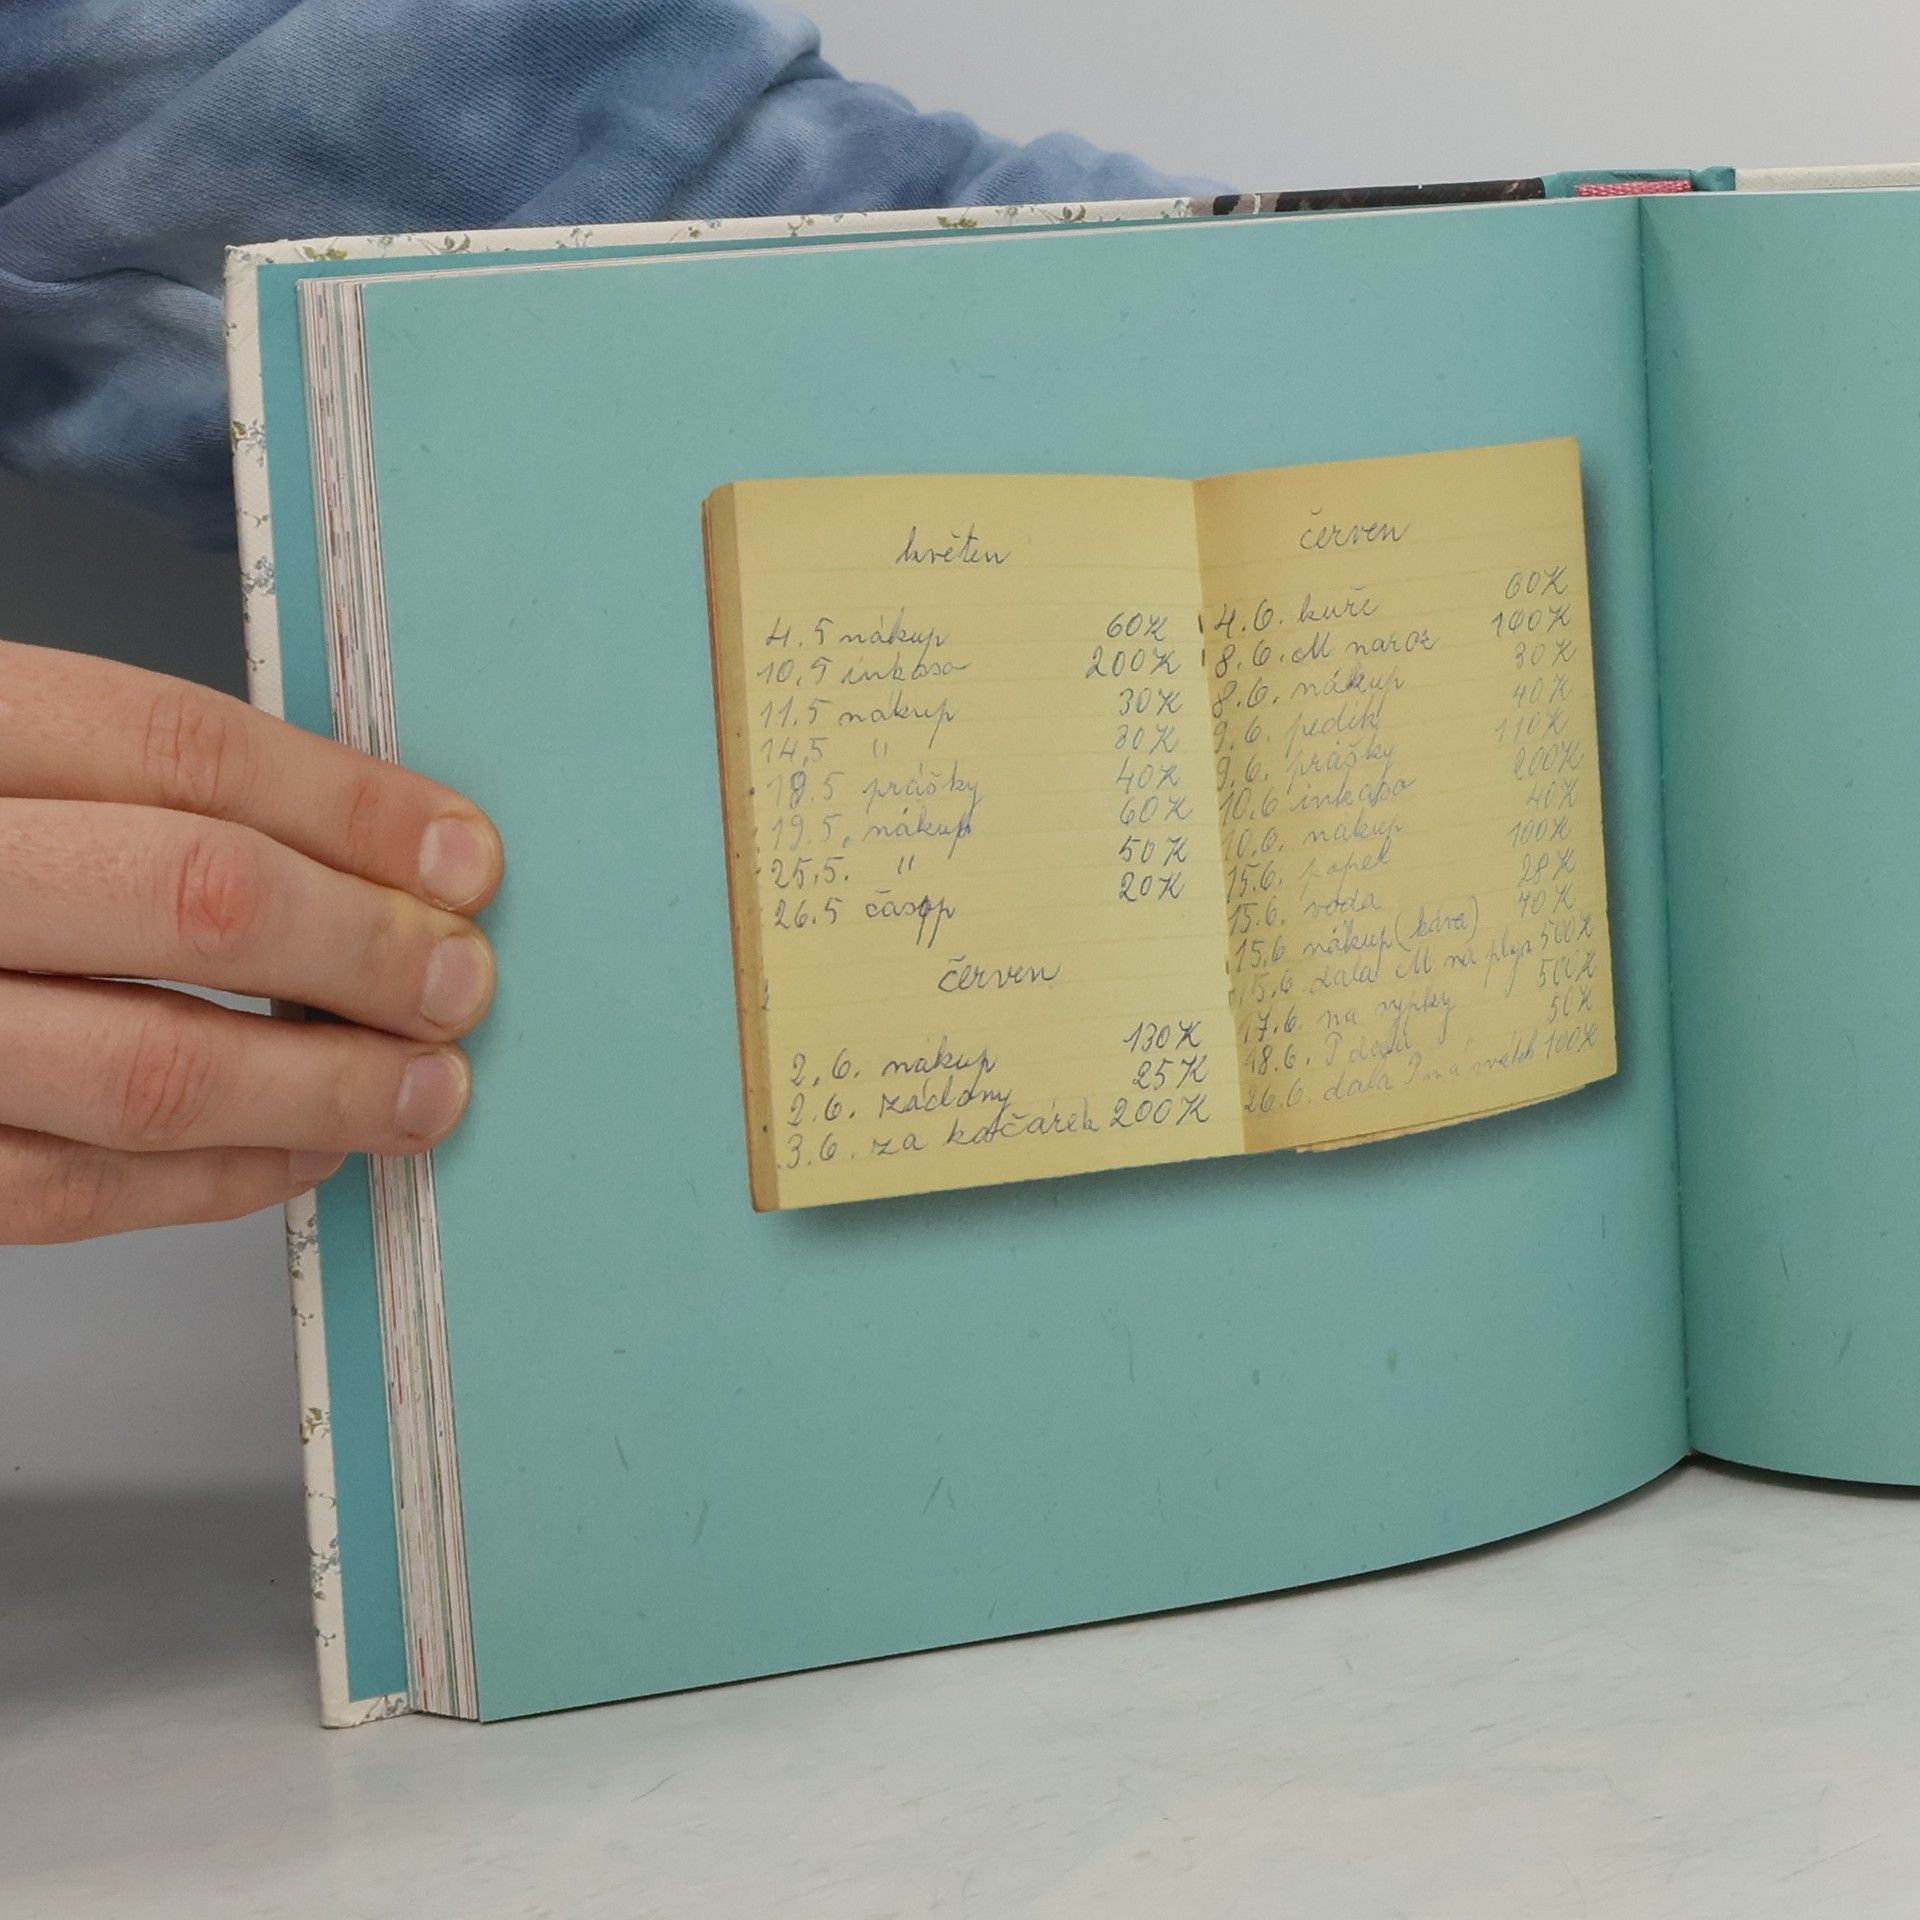 květen
4.5 nákup 60 K
10.5 inkaso 200 K
11.5 nákup 30 K
14.5 " 30 K
18.5 prášky 40 K
19.5. nákup 60 K
25.5. " 50 K
26.5 časop 20 K
červen
2.6. nákup 130 K
2.6. záclony 25 K
3.6. za kočárek 200 K
červen
4.6. kuře 60 K
8.6. M naroz 100 K
8.6. nákup 30 K
9.6. pedik 40 K
9.6. prášky 110 K
10.6 inkaso 200 K
10.6. nákup 40 K
15.6. popel 100 K
15.6. voda 28 K
15.6 nákup (káva) 70 K
15.6. dala M na plyn 500 K
17.6. na sypky 500 K
18.6. P dala 50 K
26.6. dala P na svátek 100 K